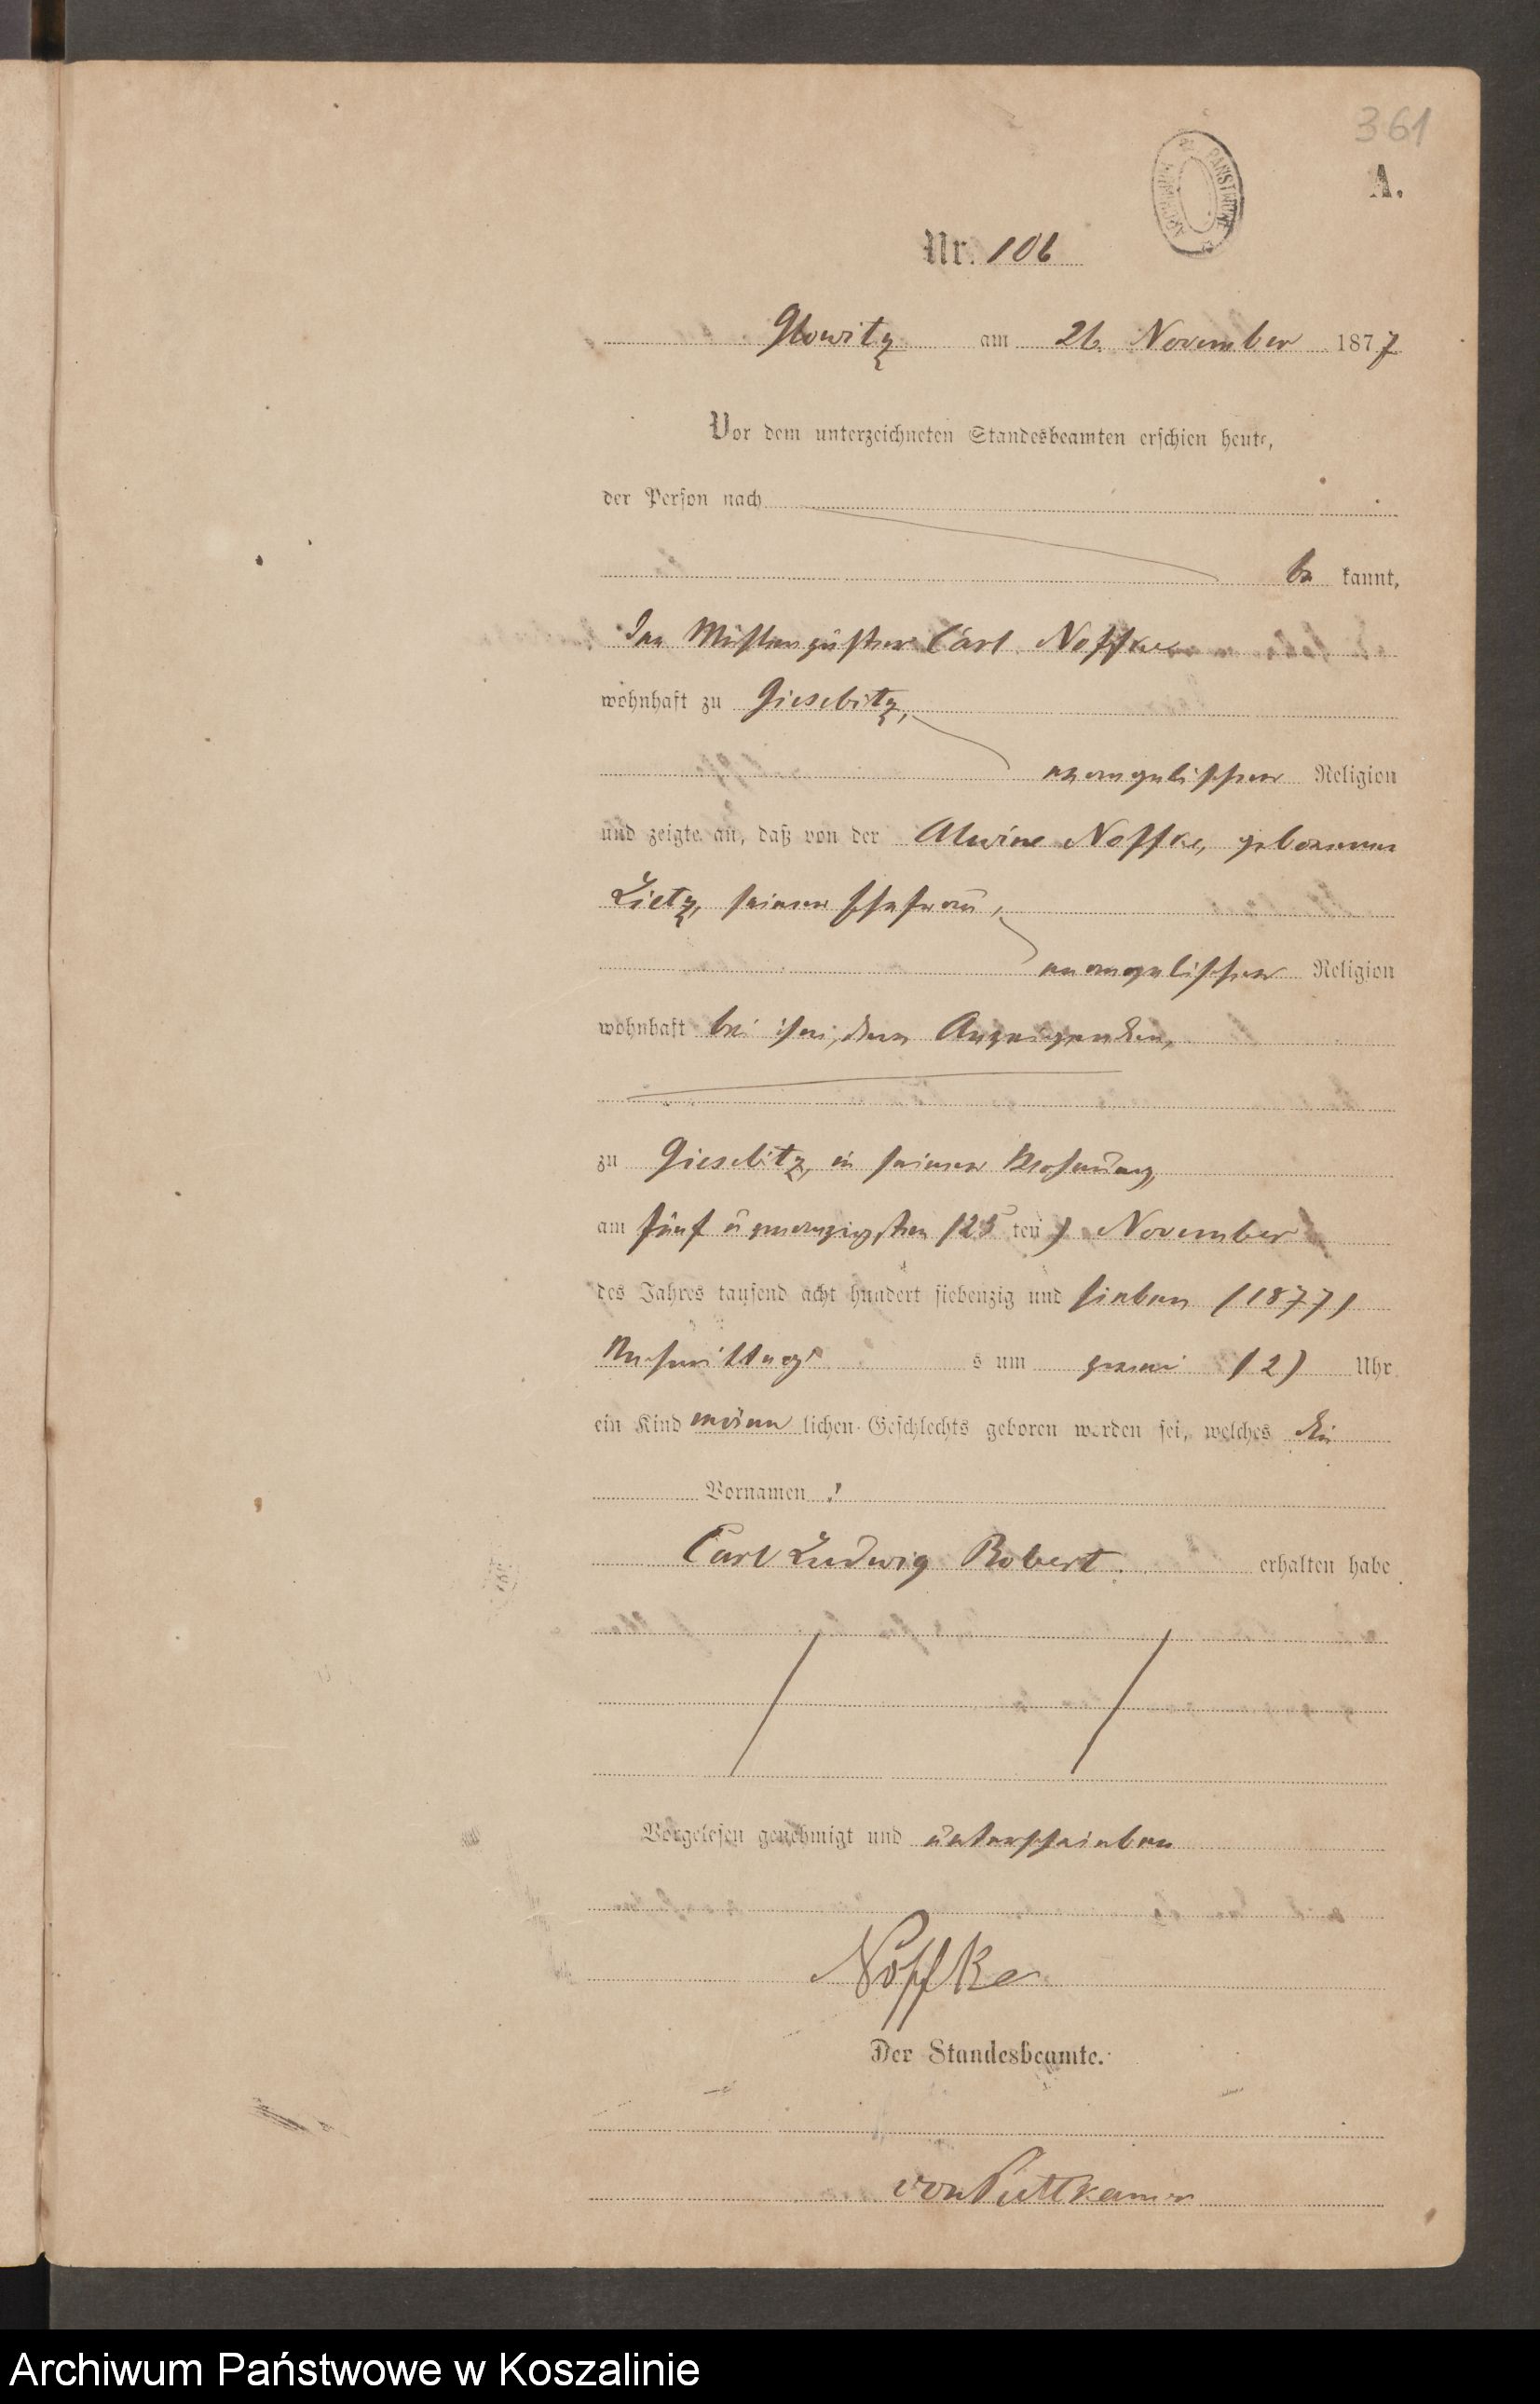 361
A.
Nr. 106
Glowitz am 26. November 1877
Vor dem unterzeichneten Standesbeamten erschien heute,
der Person nach
be kannt,
Der Mühlenpächter Carl Noffke
wohnhaft zu Giesebitz,
evangelischer Religion
und zeigte an, daß von der Alwine Noffke, geborenen
Lietz, seiner Ehefrau,
evangelischer Religion
wohnhaft bei ihm, dem Anzeigenden,
zu Giesebitz, in seiner Wohnung,
am fünf u zwanzigsten (25 ten) November
des Jahres tausend acht hundert siebenzig und sieben (1877)
Nachmittags s um zwei (2) Uhr
ein Kind männ lichen Geschlechts geboren worden sei, welches die
Vornamen :
Carl Ludwig Robert. erhalten habe
Vorgelesen genehmigt und unterschrieben
Noffke
Der Standesbeamte.
von Puttkamer
Archiwum Państwowe w Koszalinie